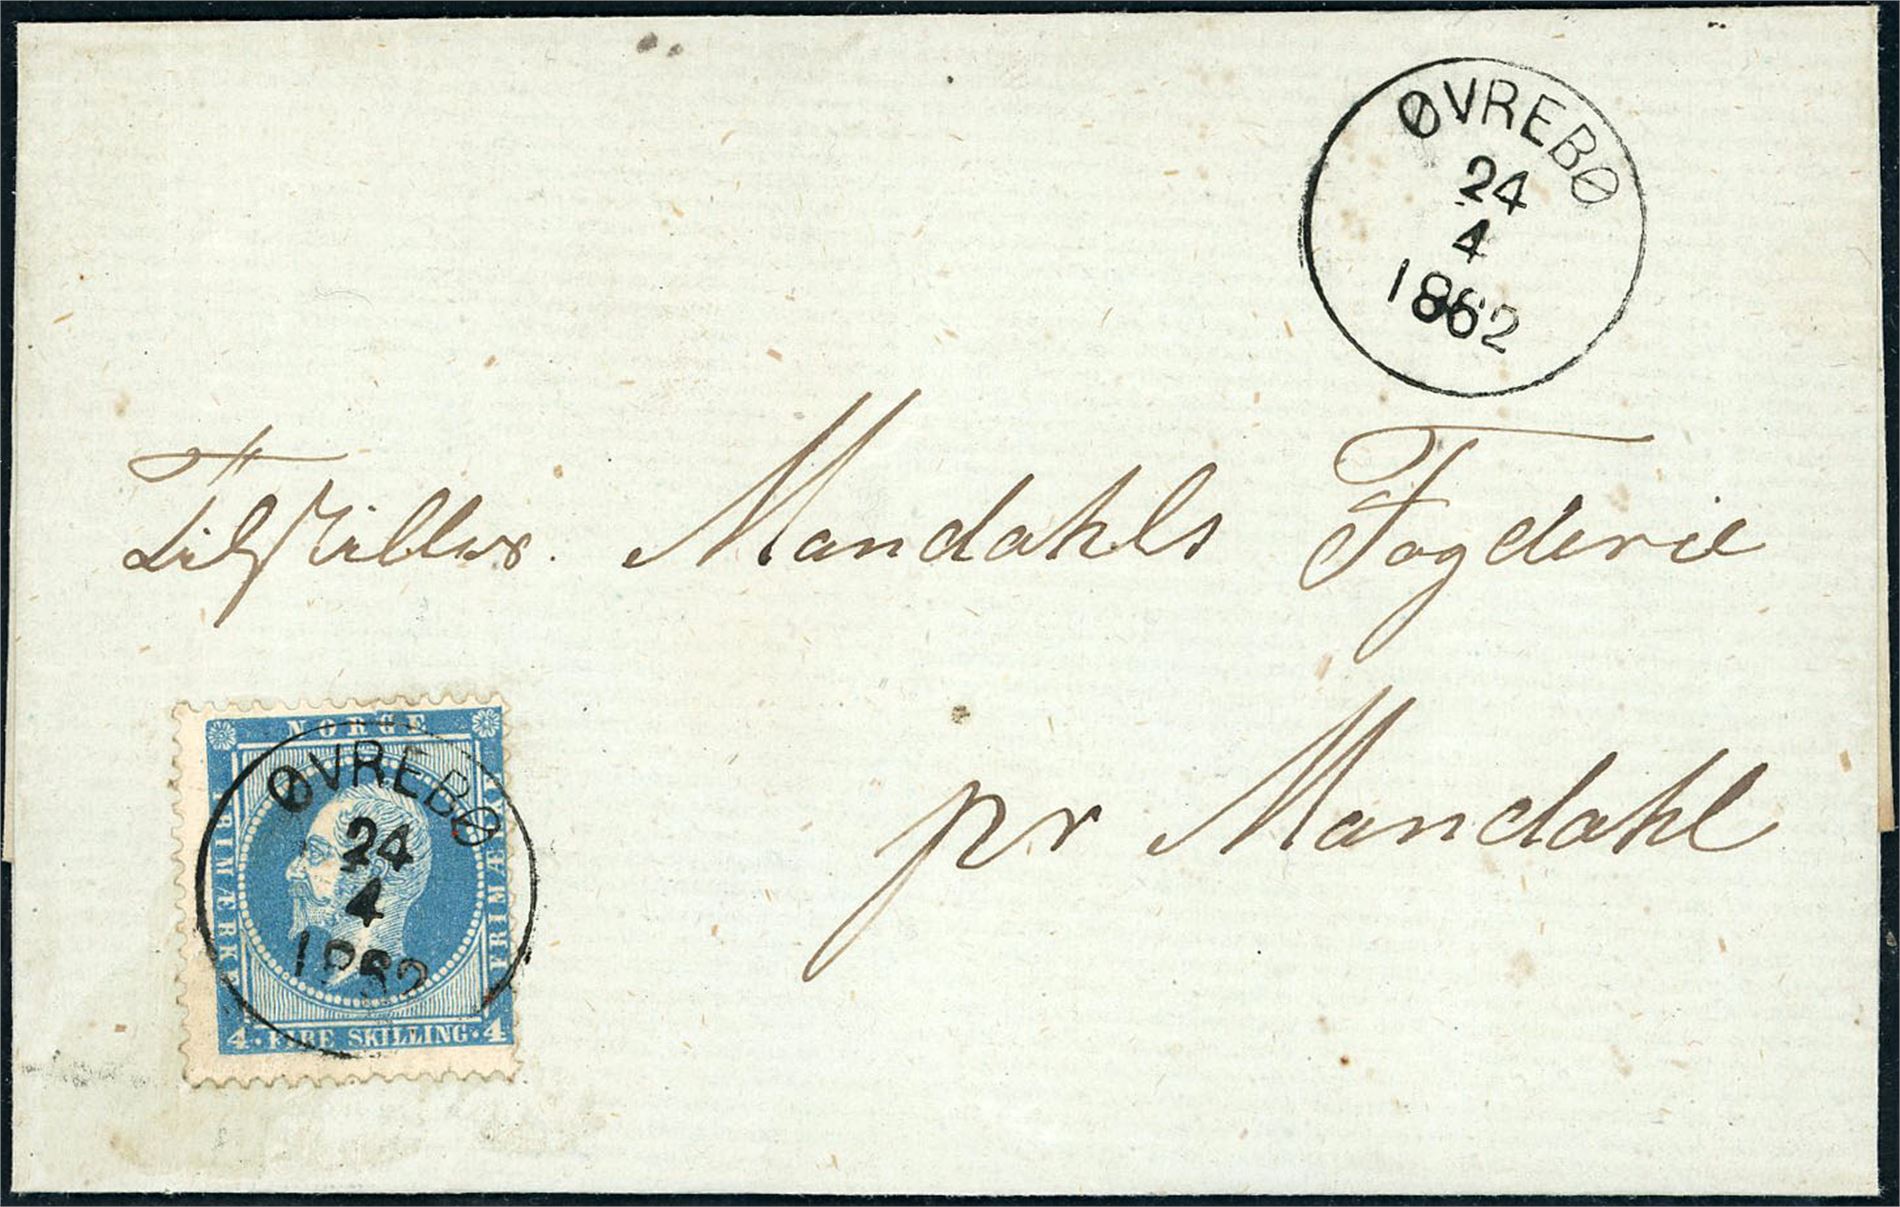 ØVREBØ
24
4
1862
Tilstilles. Mandahls Fogderie
pr Mandahl
NORGE
FRIMÆRKE
FRIMÆ
4 · FIRE SKILLING · 4
ØVREBØ
24
4
1862